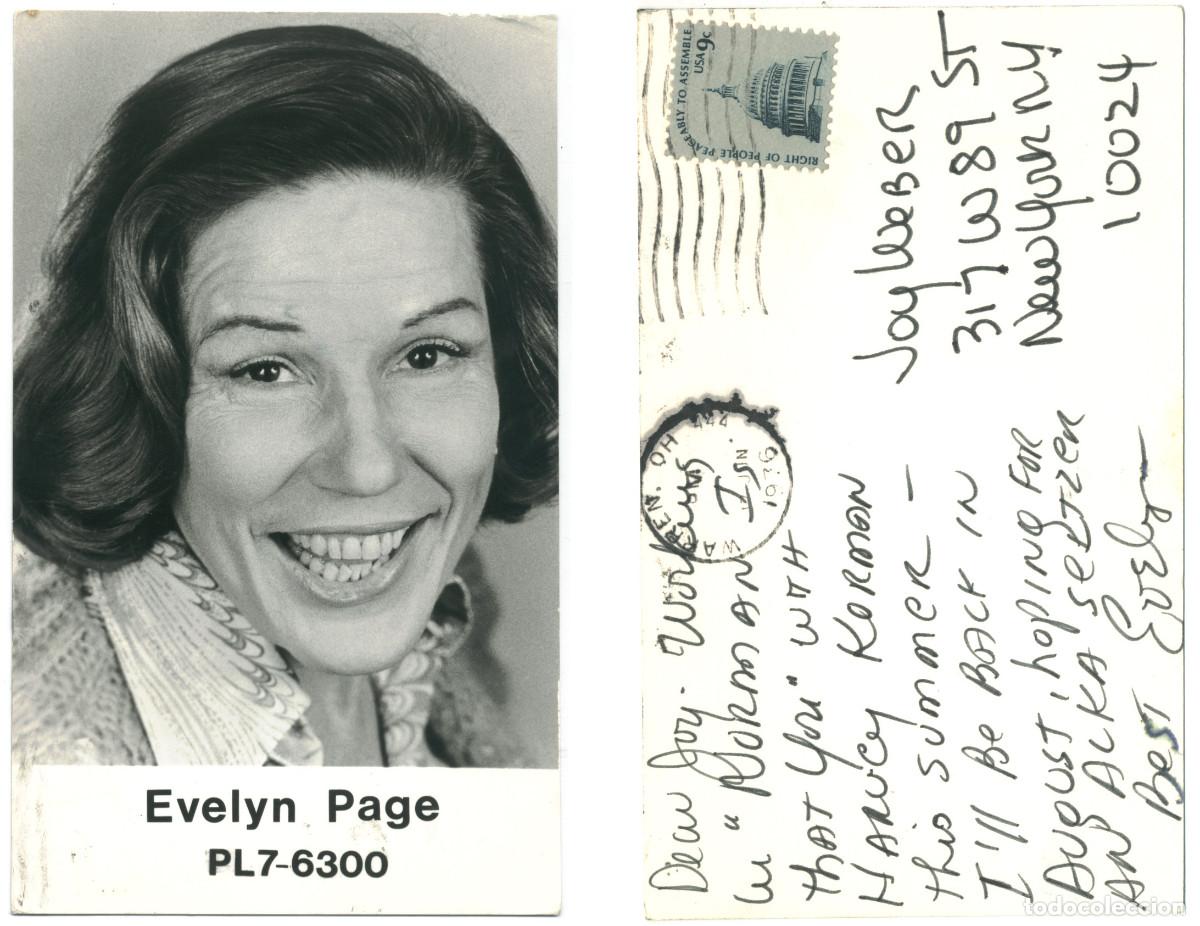 Evelyn Page
PL7-6300
RIGHT OF PEOPLE PEACEABLY TO ASSEMBLE
USA 9c
WARREN, OH 444
Joy Weber
317 W 89 ST
New York NY
10024
Dear Joy - Working
in "Norman Is
that You" with
Harvey Korman
this summer -
I'll be back in
August, hoping for
an Alka Seltzer
Best Evelyn
todocoleccion